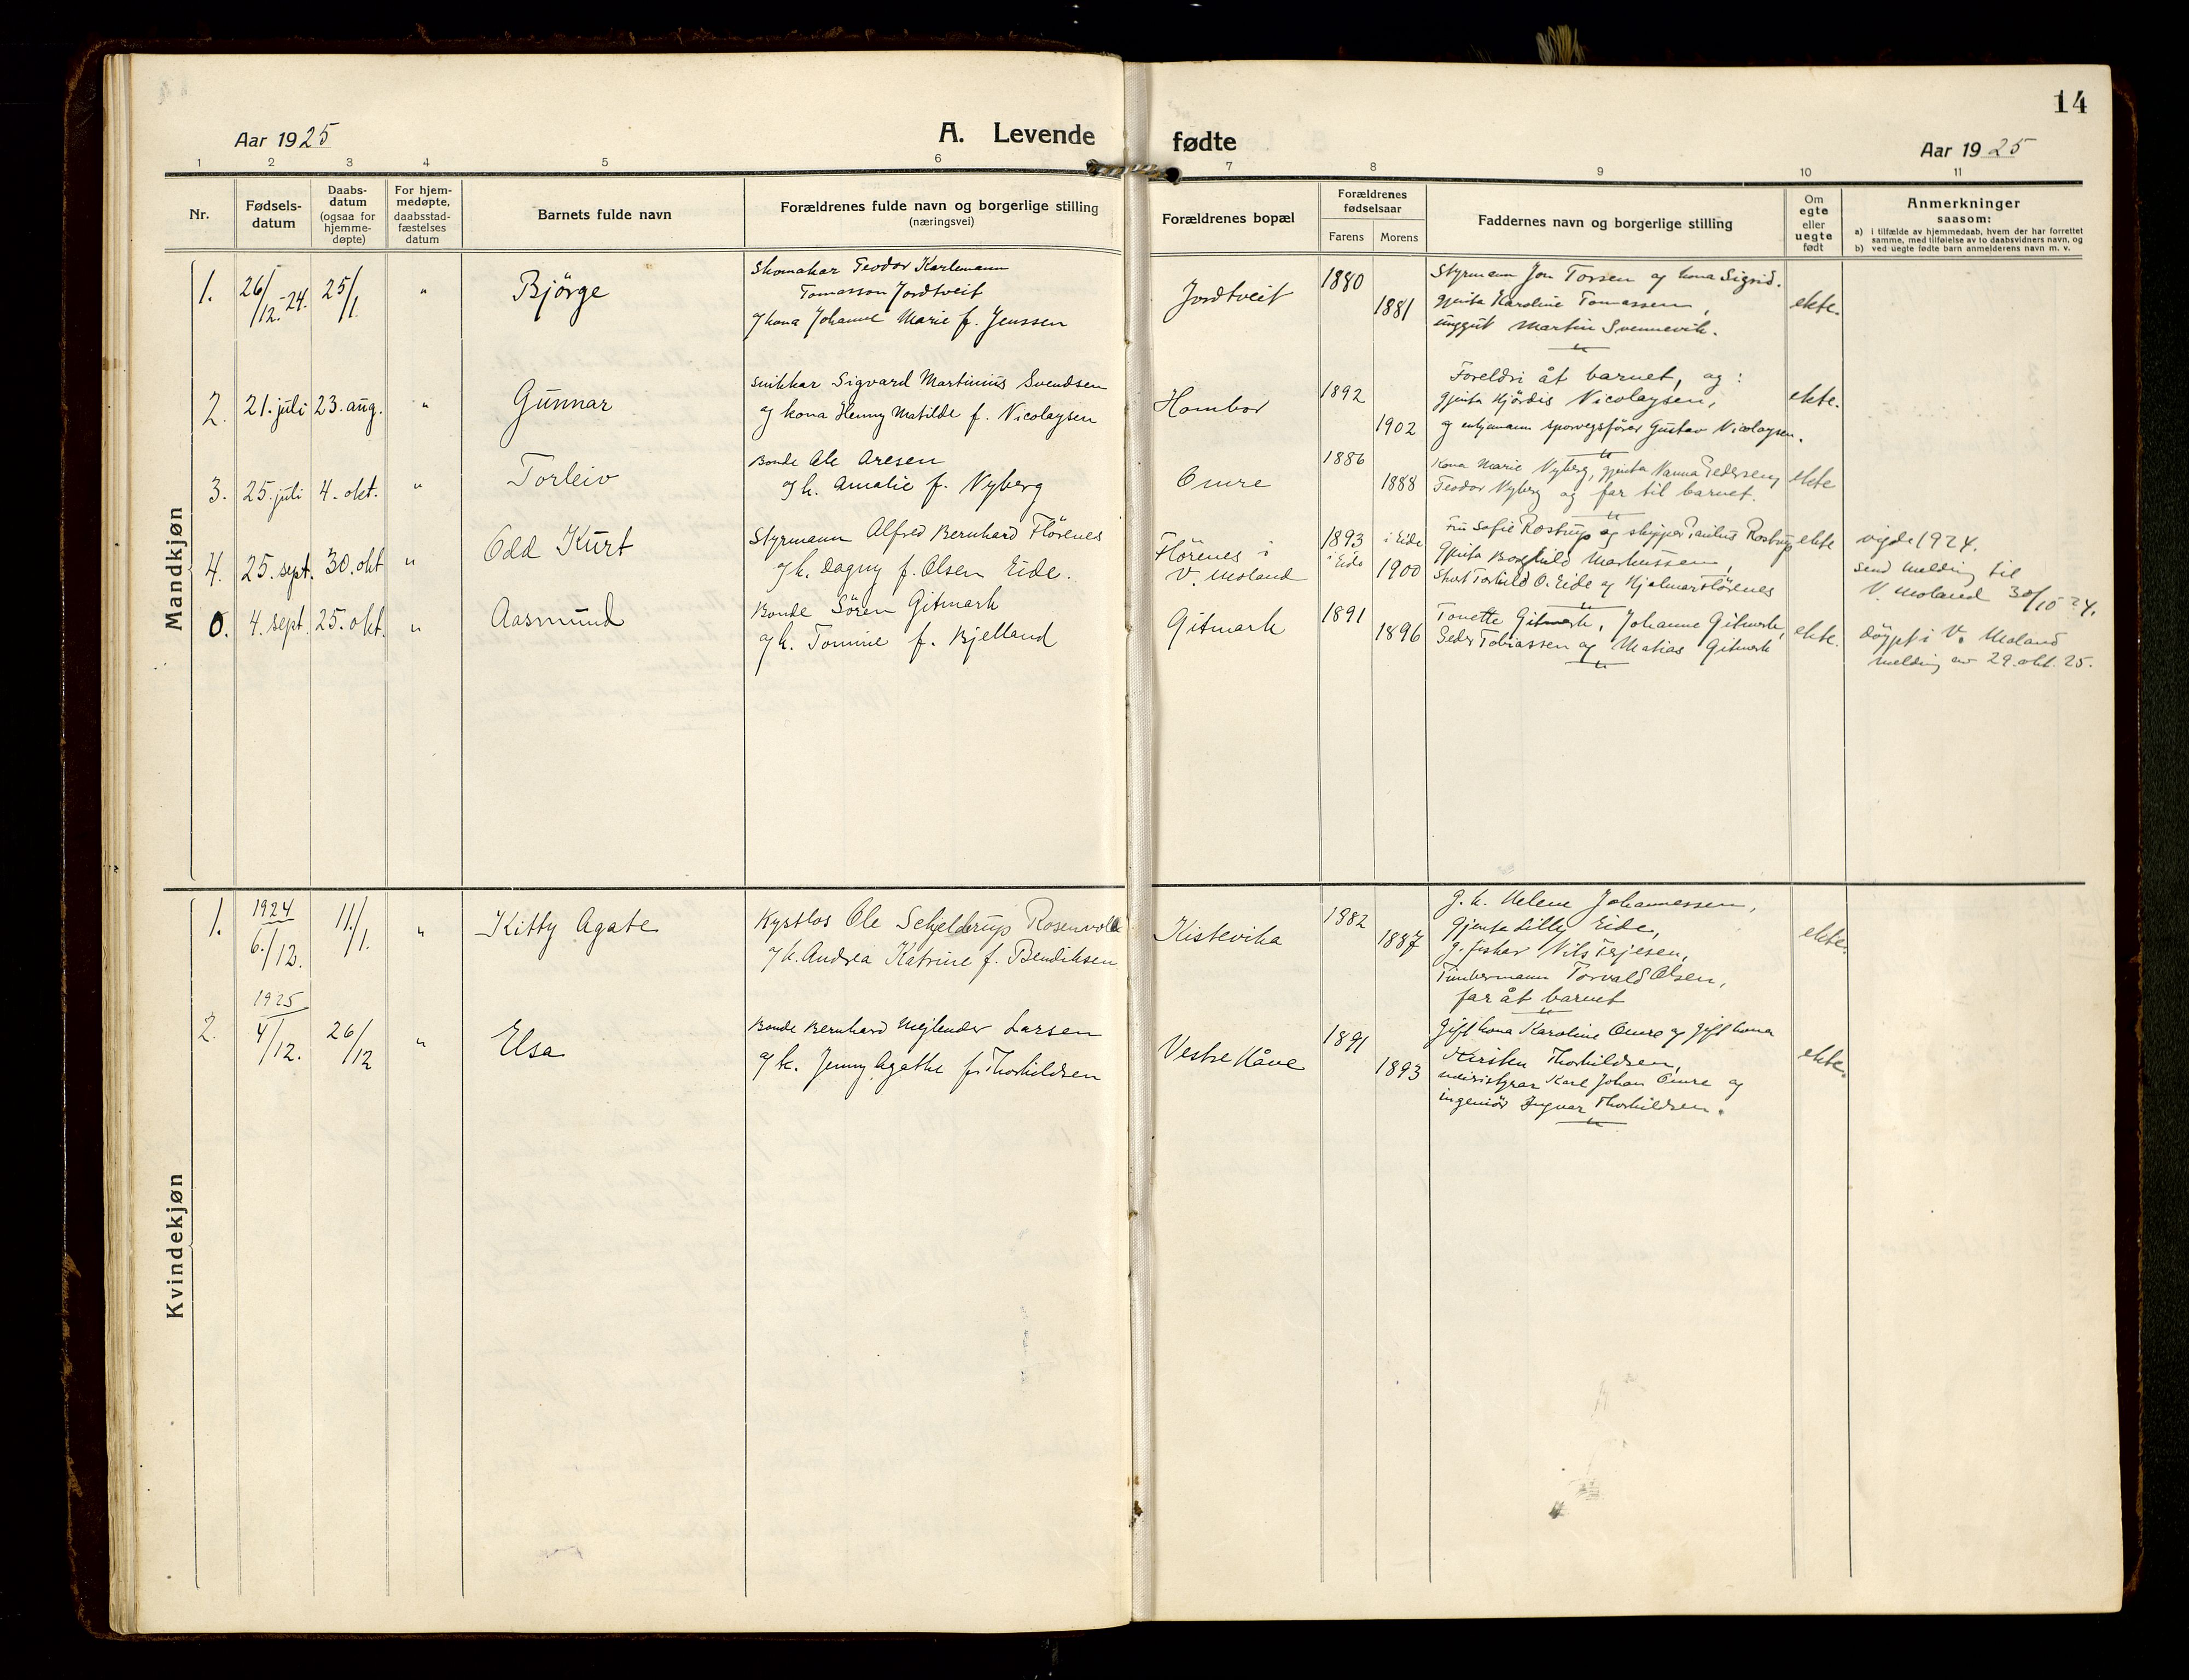 14
Aar 1925
A. Levende fødte
Aar 1925
1 2 3 4 5 6 7 8 9 10 11
Nr.
Fødsels-
datum
Daabs-
datum
(ogsaa for
hjemme-
døpte)
For hjem-
medøpte,
daabsstad-
fæstelses
datum
Barnets fulde navn
Forældrenes fulde navn og borgerlige stilling
(næringsvei)
Forældrenes bopæl
Forældrenes
fødselsaar
Farens Morens
Faddernes navn og borgerlige stilling
Om
egte
eller
uegte
født
Anmerkninger
saasom:
a) i tilfælde av hjemmedaab, hvem der har forrettet
samme, med tilføielse av to daabsvidners navn, og
b) ved uegte fødte barn anmelderens navn m. v.
Mandkjøn
1. 26/12.-24. 25/1. " Bjørge
Skomakar Teodor Karlemann
Tomasson Jordtveit
og kona Johanne Marie f. Jenssen
Jordtveit
1880
1881
Styrmann Jon Torsen og kona Sigrid.
gjenta Karoline Tomassen,
unggut Martin Svennevik.
ekte.
2. 21. juli 23. aug. " Gunnar
Snikkar Sigvard Martinius Svendsen
og kona Henny Matilde f. Nicolaysen
Hombor
1892
1902
Foreldri åt barnet, og:
gjenta Hjördis Nicolaysen,
og enkjemann sporvegsförer Gustav Nicolaysen.
ekte.
3. 25. juli 4. okt. " Torleiv
Bonde Ole Aresen
og k. Amalie f. Nyberg
Omre
1886
1888
Kona Marie Nyberg, gjenta Nanna Pedersen,
Teodor Nyberg og far til barnet.
ekte
4. 25. sept. 30. okt " Odd Kurt
Styrmann Alfred Bernhard Flörenes
og k. Dagny f. Olsen Eide.
Flörenes i
V. Moland
1893 i Eide
i Eide 1900
Fru Sofie Rostrup og skipper Paulus Rostrup
Gjenta Borghild Markussen,
Torhild O. Eide og Hjalmar Flörenes
ekte
vigde 1924.
Send melding til
V. Moland 30/10 24.
0. 4. sept. 25. okt. " Aasmund
Bonde Sören Gitmark
og k. Tomine f. Bjelland
Gitmark
1891
1896
Tonette Gitmark, Johanne Gitmark,
Peder Tobiassen og Matias Gitmark
ekte.
döypt i V. Moland
melding av 29. okt. 25.
Kvindekjøn
1. 1924
6./12. 11./1. " Kitty Agate
Kyrtlos Ole Schjelderup Rosenvold
og k. Andrea Katrine f. Bendiksen
Kistevika
1882
1887
g. k. Helene Johannessen,
Gjenta Lilly Eide,
g. fiskar Nils Terjesen,
Timbermann Torvald Olsen,
far åt barnet
ekte.
1925
2. 4/12. 26/12 " Elsa
Bonde Bernhard Mejlender Larsen
og k. Jenny Agathe f. Thorkildsen
Vestre Kåve
1891
1893
Gift kona Karoline Omre og gift kona
Kirsten Thorkildsen,
meieristyrar Karl Johan Omre og
ingeniör Ingvar Thorkildsen.
ekte.